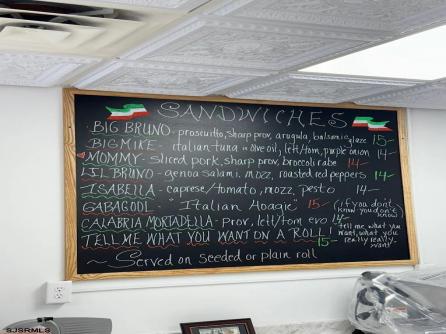 SANDWICHES
BIG BRUNO - prosciutto, sharp prov, arugula, balsamic glaze 15-
BIG MIKE - italian tuna in olive oil, let/tom, purple onion 14-
MOMMY - sliced pork, sharp prov, broccoli rabe 14-
LIL BRUNO - genoa salami, mozz, roasted red peppers 14-
ISABELLA - caprese/tomato, mozz, pesto 14-
GABAGOOL "Italian Hoagie" 15- (if you don't know you don't know)
CALABRIA MORTADELLA - prov, let/tom evo 14-
TELL ME WHAT YOU WANT ON A ROLL! 15- tell me what you want, what you really really want
~ Served on seeded or plain roll
SJSRMLS